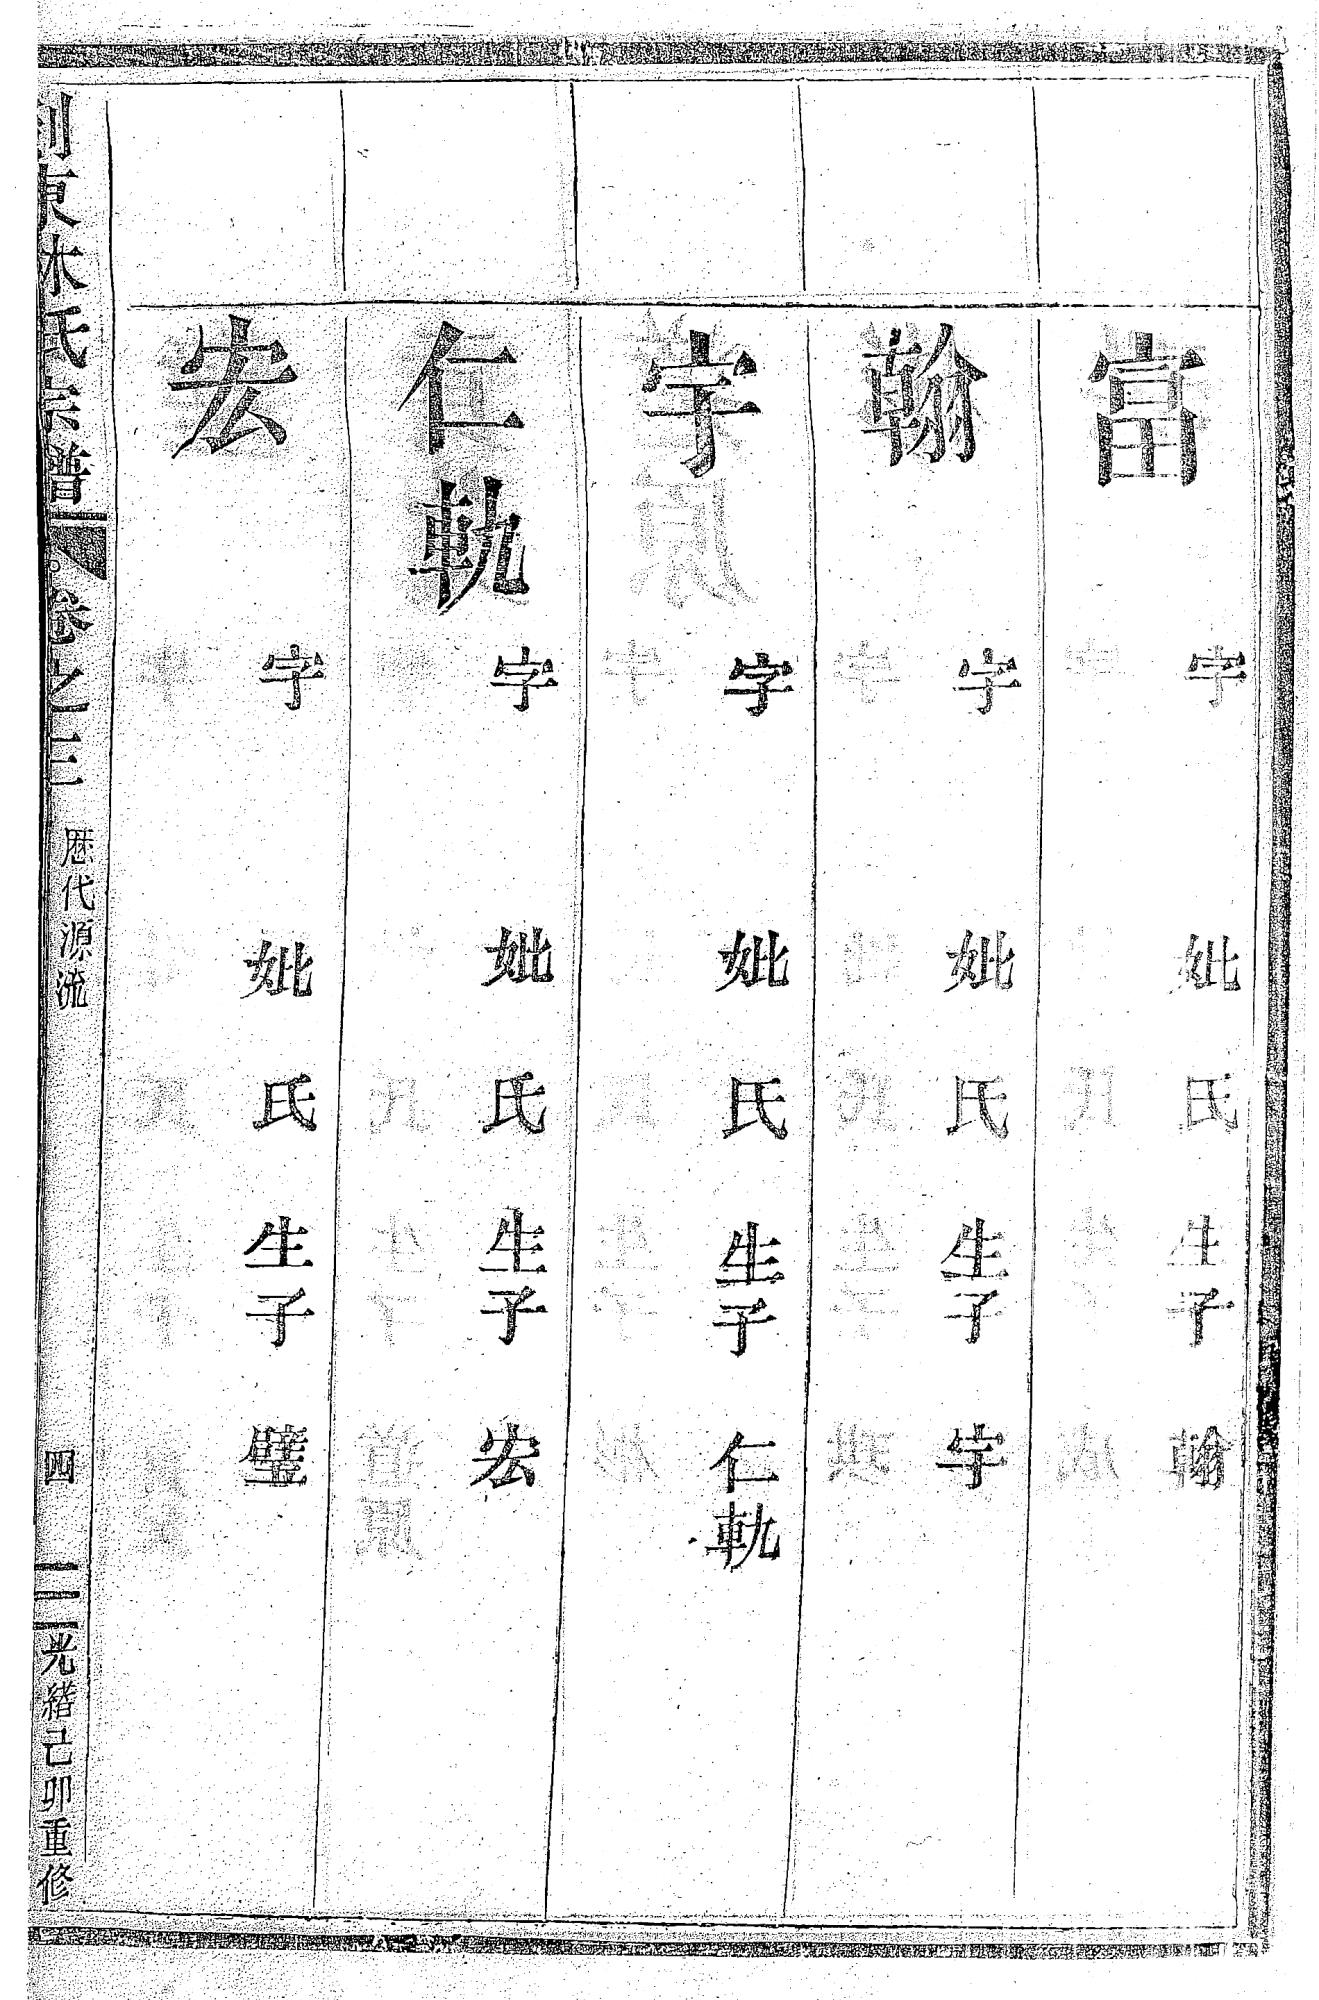 富 字 妣 氏 生子 翰
翰 字 妣 氏 生子 宇
宇 字 妣 氏 生子 仁軌
仁軌 字 妣 氏 生子 宏
宏 字 妣 氏 生子 璧
東 氏宗譜 卷之三 厯代源流 四 光緒己卯重修